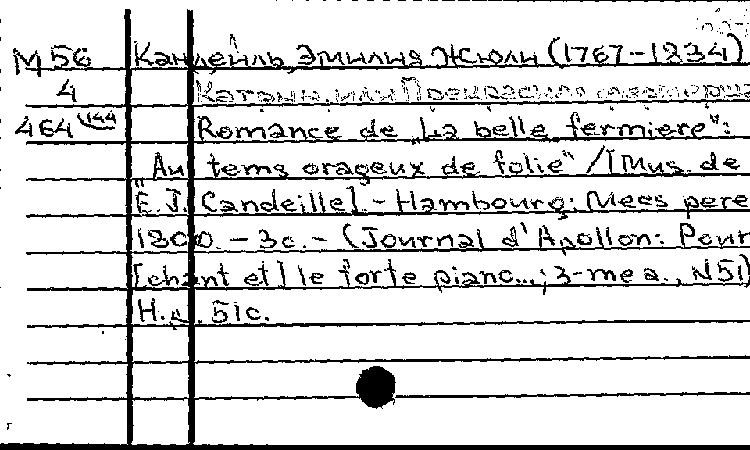 М 56 Кандейль, Эмилия Жюли (1767-1834)
4 Катрин, или Прекрасная фермерша
464 Romance de „La belle fermiere":
„Au tems orageux de folie" / [Mus. de
E. J. Candeille]. - Hambourg: Mees pere
1800. - 3с. - (Journal d'Apollon: Pour
[chant et] le forte piano...; 3-me a., N51)
Н.д. 51с.